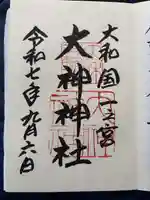 大和国一之宮
大神神社
令和七年九月六日